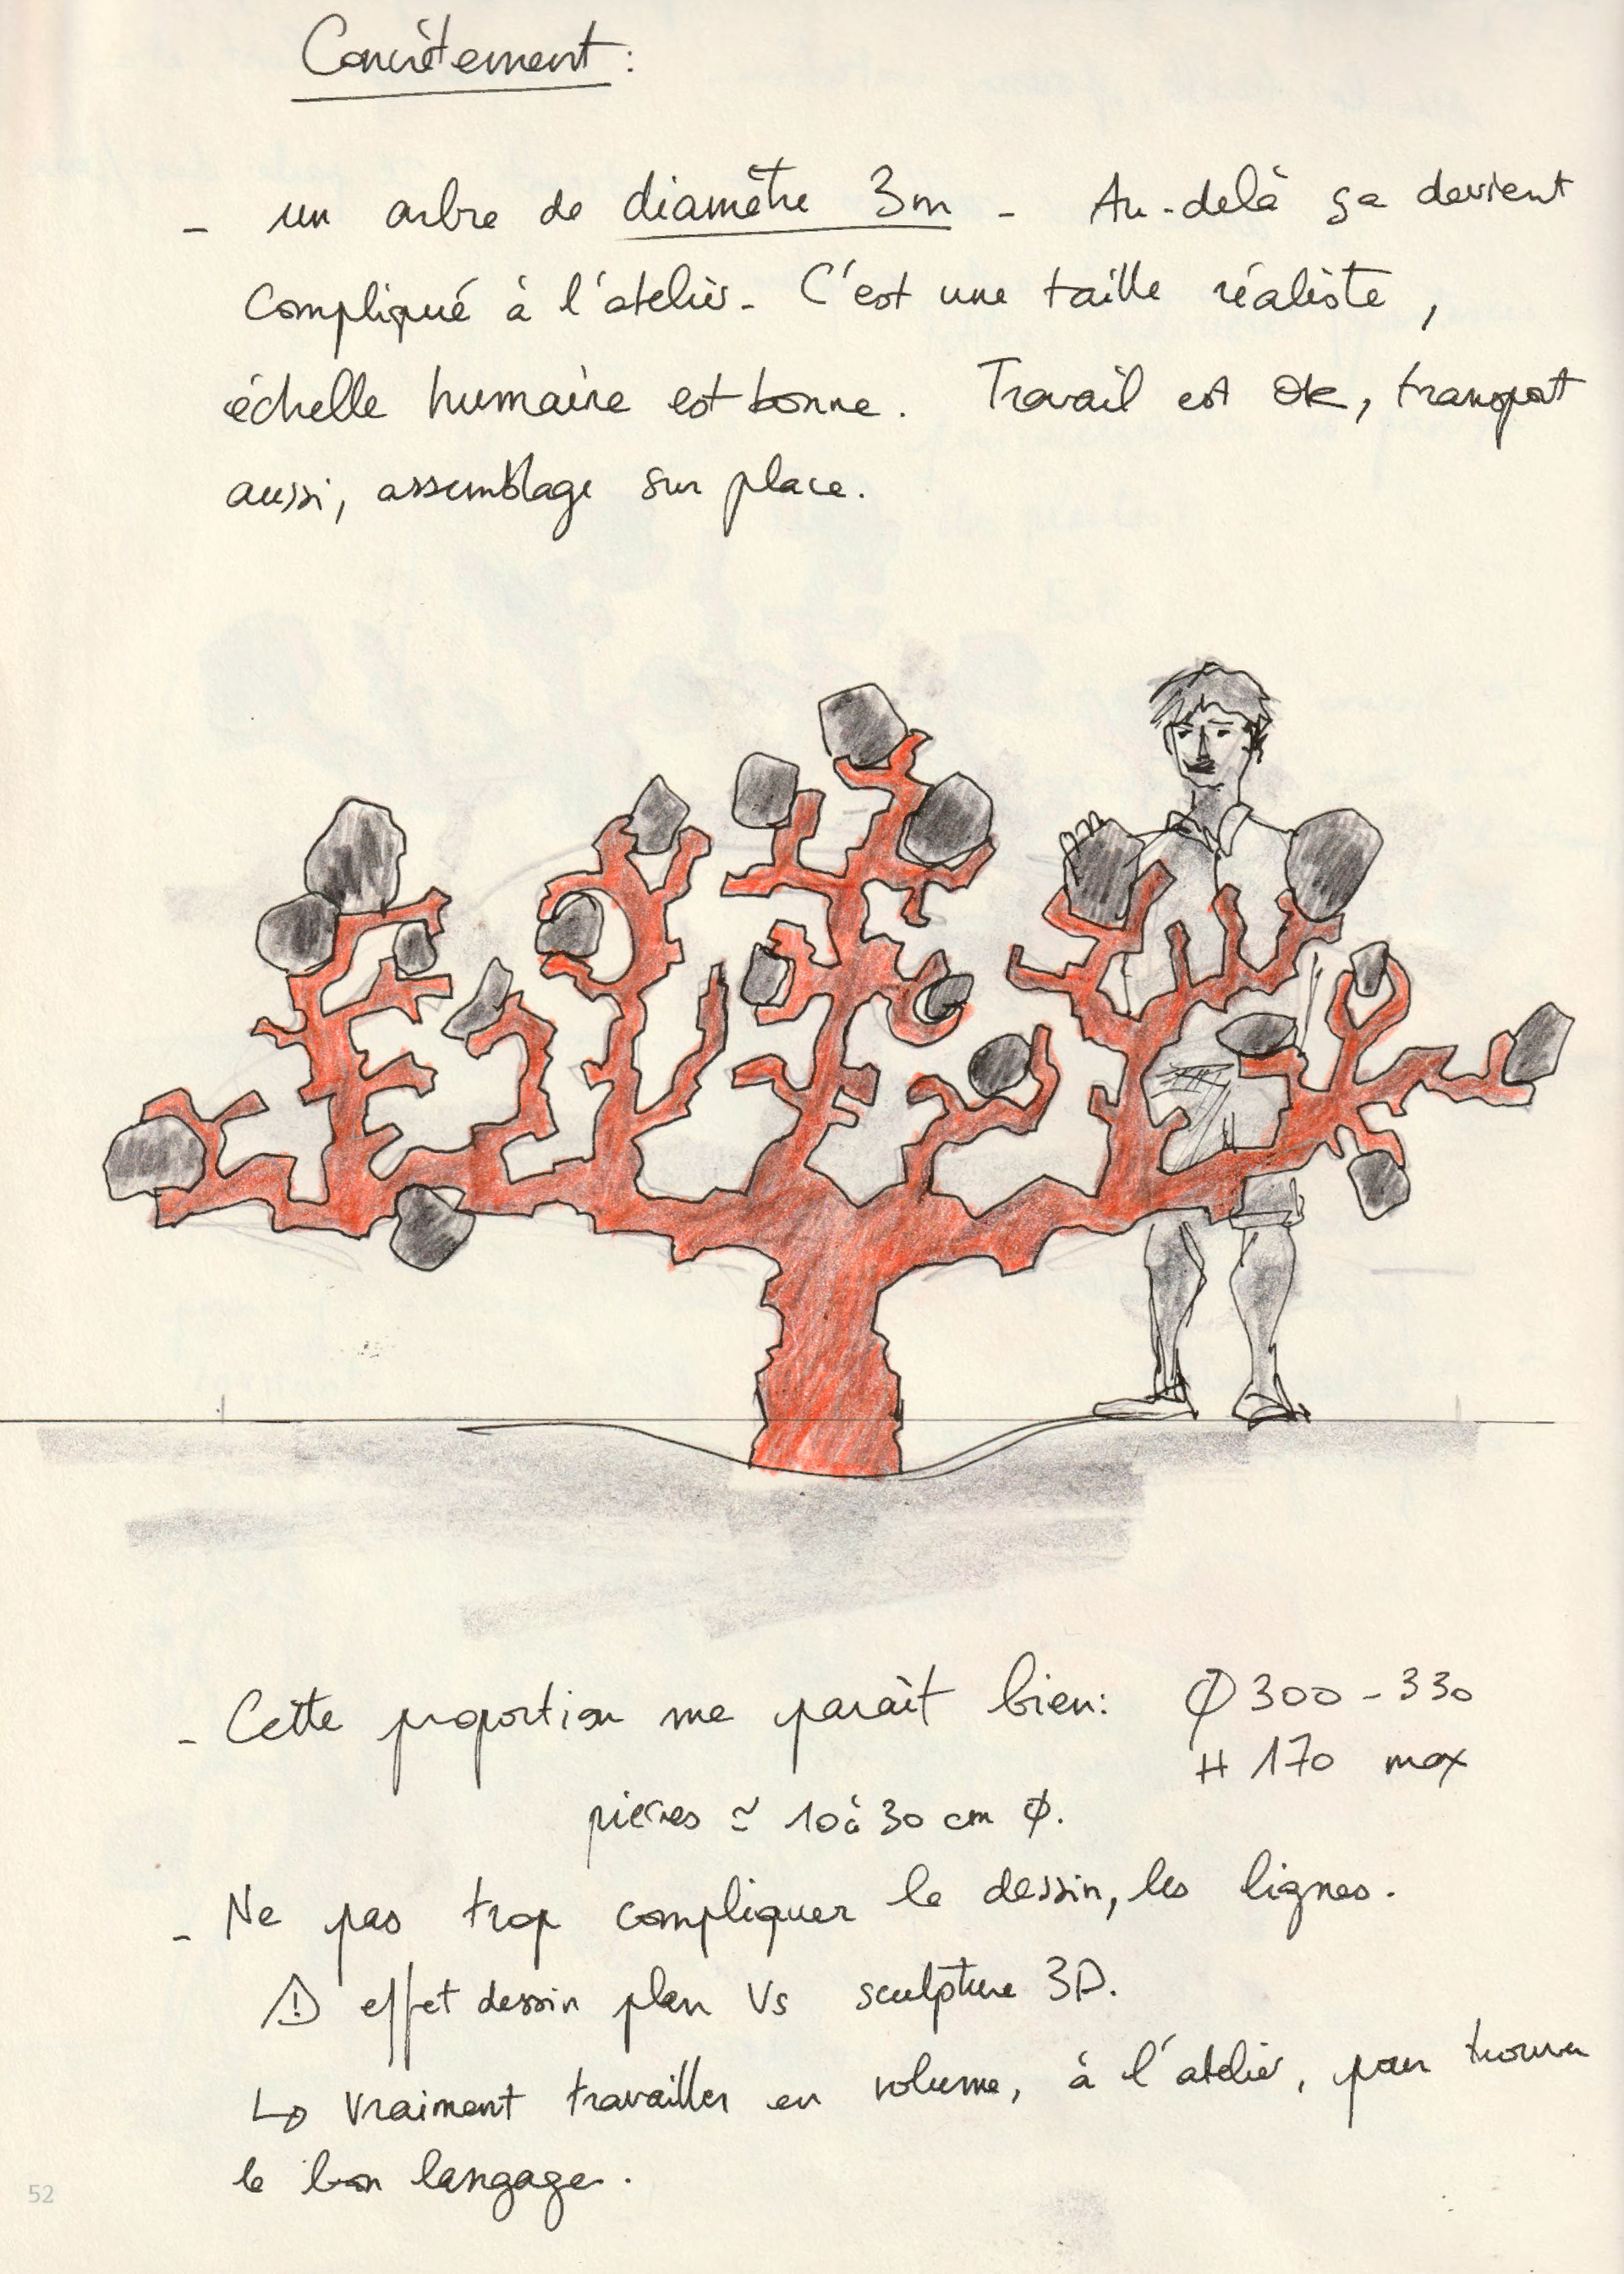 Concrètement :
- un arbre de diamètre 3m - Au-delà ça devient
compliqué à l'atelier - C'est une taille réaliste,
échelle humaine est bonne. Travail est ok, transport
aussi, assemblage sur place.
- Cette proportion me paraît bien : Ø 300 - 330
H 170 max
pierres ≃ 10 à 30 cm Ø.
- Ne pas trop compliquer le dessin, les lignes.
⚠ effet dessin plan Vs sculpture 3D.
↳ vraiment travailler en volume, à l'atelier, pour trouver
le bon langage.
52